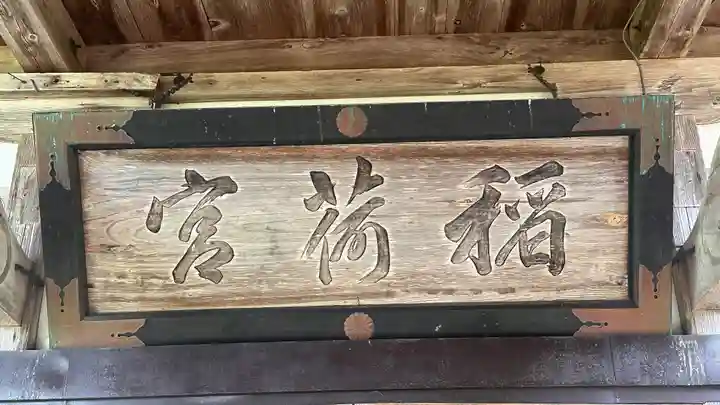 稲荷宮